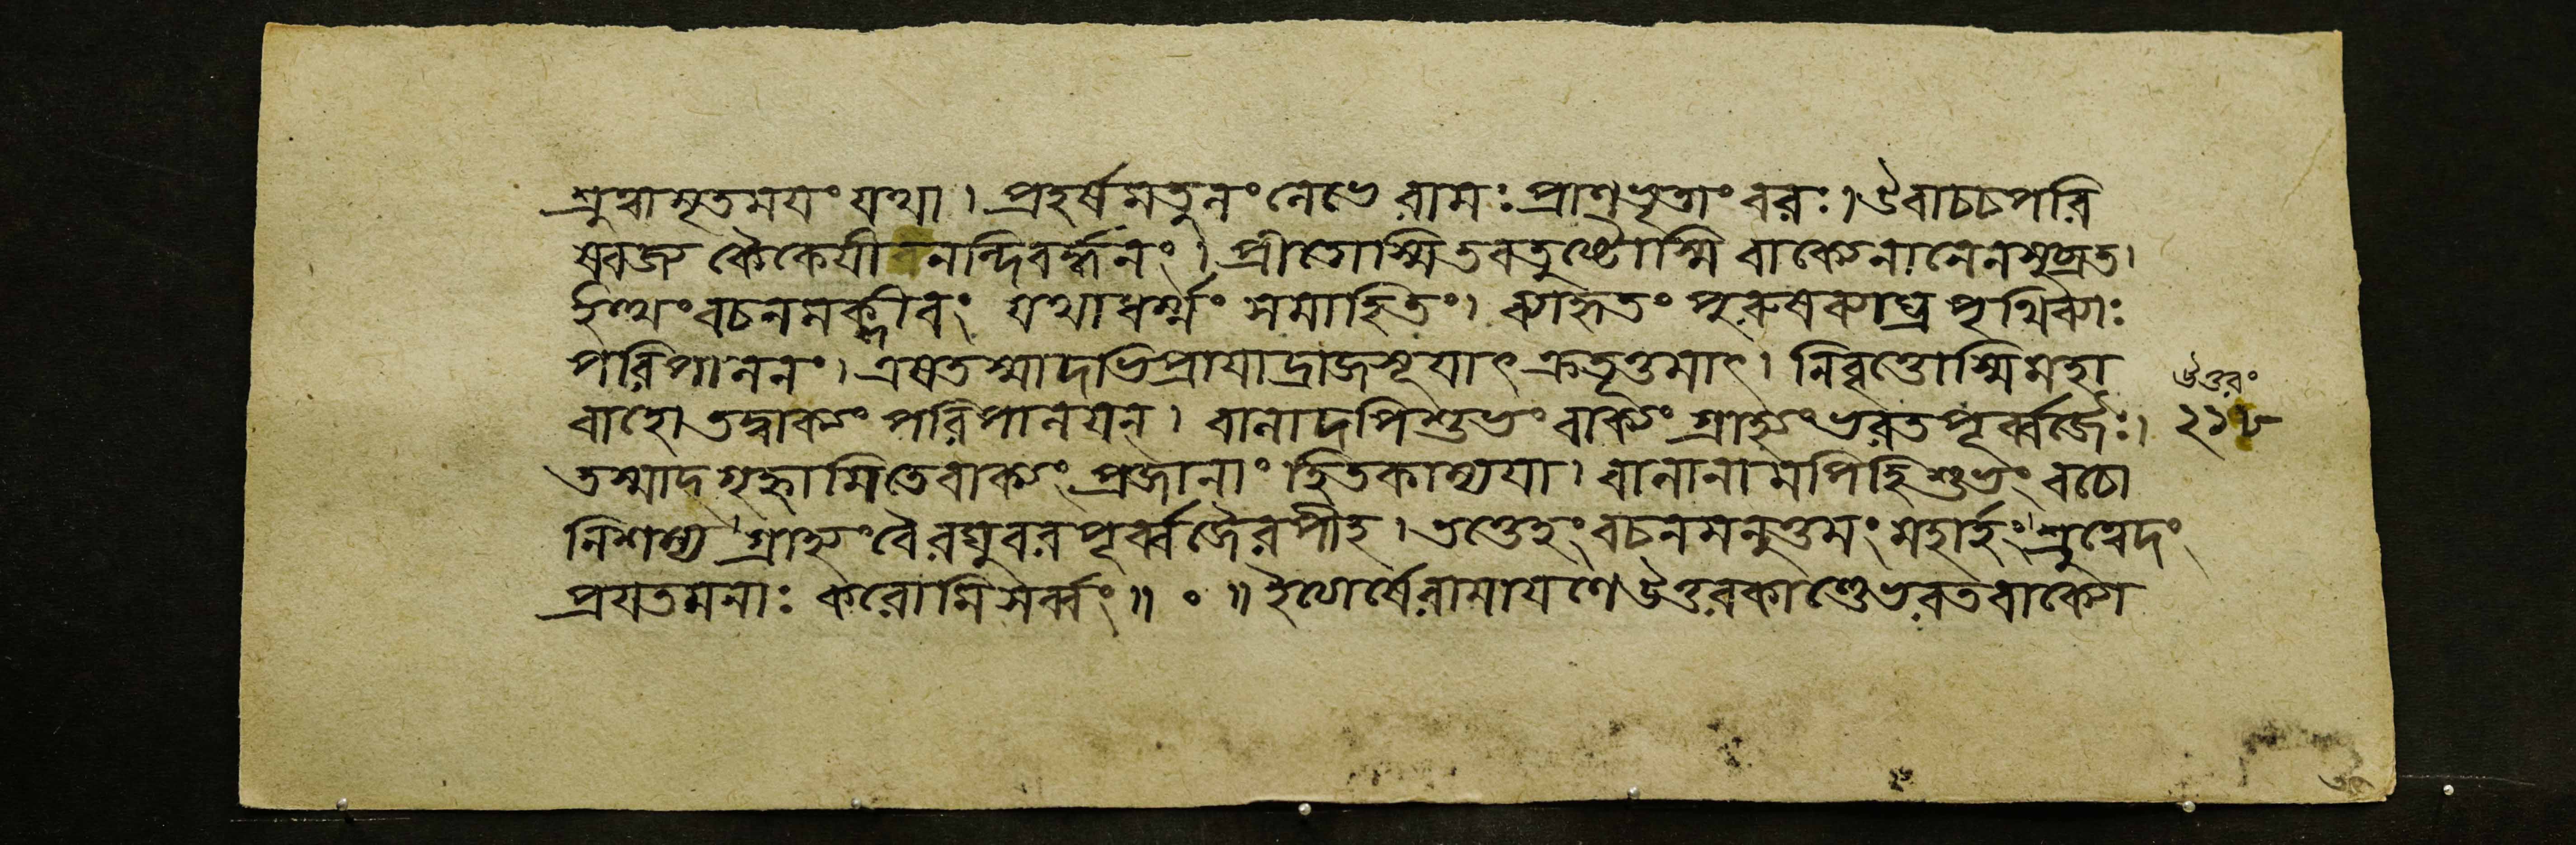 শ্রুত্বামৃতময়ং যথা। প্রহর্ষমতুলং লেভে রামঃ প্রাণভৃতাং বরঃ। উবাচ চ পরি
ষ্বজ্য কৈকেয়ী নন্দিবর্দ্ধনং। প্রীতোস্মি তব তুষ্টোস্মি বাক্যেনানেন সুব্রত।
ইত্থং বচনমক্লীবং যথাধর্ম্মং সমাহিতং। ব্যাহৃতং পুরুষব্যাঘ্র পৃথিব্যাঃ
পরিপালনং। এষ তস্মাদভিপ্রায়াদ্রাজসূয়াৎ ক্রতূত্তমাৎ। নিবৃত্তোস্মি মহা
বাহো তদ্বাক্যং পরিপালয়ন্। বালাদপি শুভং বাক্যং গ্রাহ্যং ভরতপূর্ব্বজৈঃ।
তস্মাদ্গৃহ্ণামি তে বাক্যং প্রজানাং হিতকাম্যয়া। বালানামপি হি শুভং বচো
নিশম্য গ্রাহ্যং বৈ রঘুবর পূর্ব্বজৈরপীহ। তত্তেহং বচনমনুত্তমং মহার্হং শ্রুত্বেদং
প্রযতমনাঃ করোমি সর্ব্বং॥ ০ ॥ ইত্যার্ষে রামায়ণে উত্তরকাণ্ডে ভরতবাক্যে
উত্তরং
২১৮